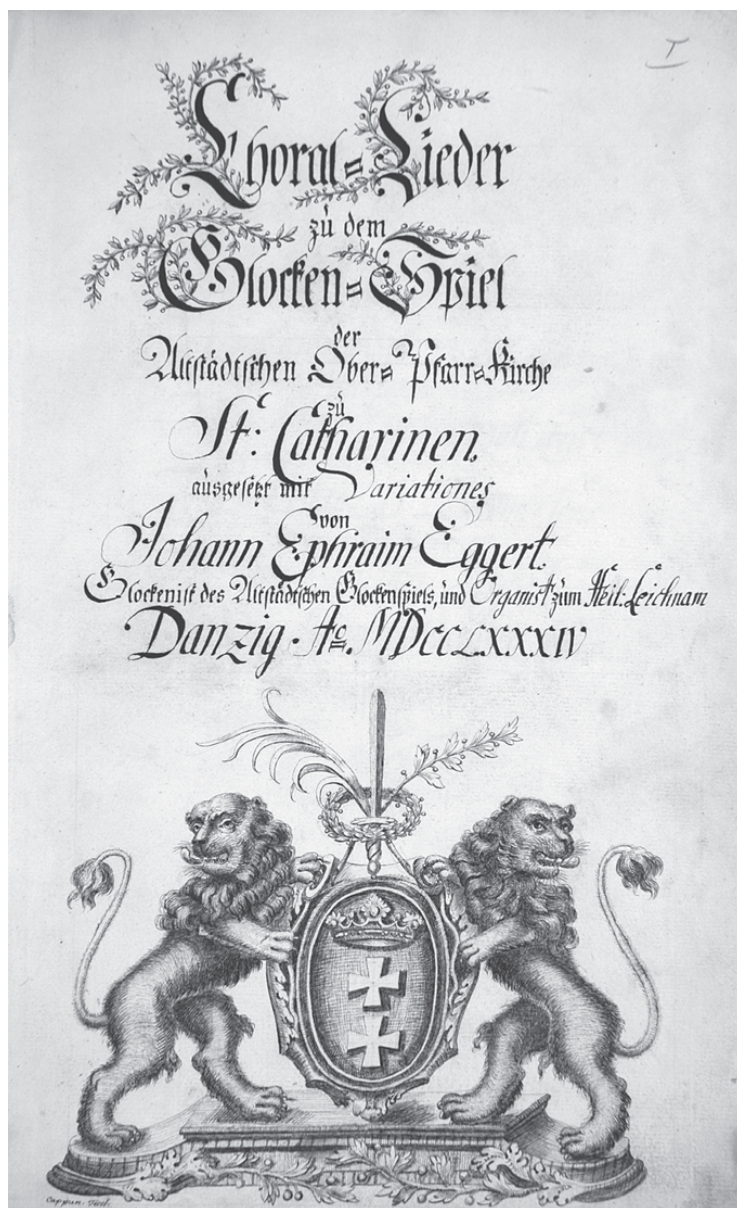 I
Choral=Lieder
zů dem
Glocken=Spiel
der
Altstädtschen Ober=Pfarr=Kirche
zů
St: Catharinen,
aůsgesetzt mit Variationes
von
Johann Ephraim Eggert.
Glockenist des Altstädtschen Glockenspiels, ůnd Organist zům Heil: Leichnam
Danzig. Ao. MDCCLXXXIV